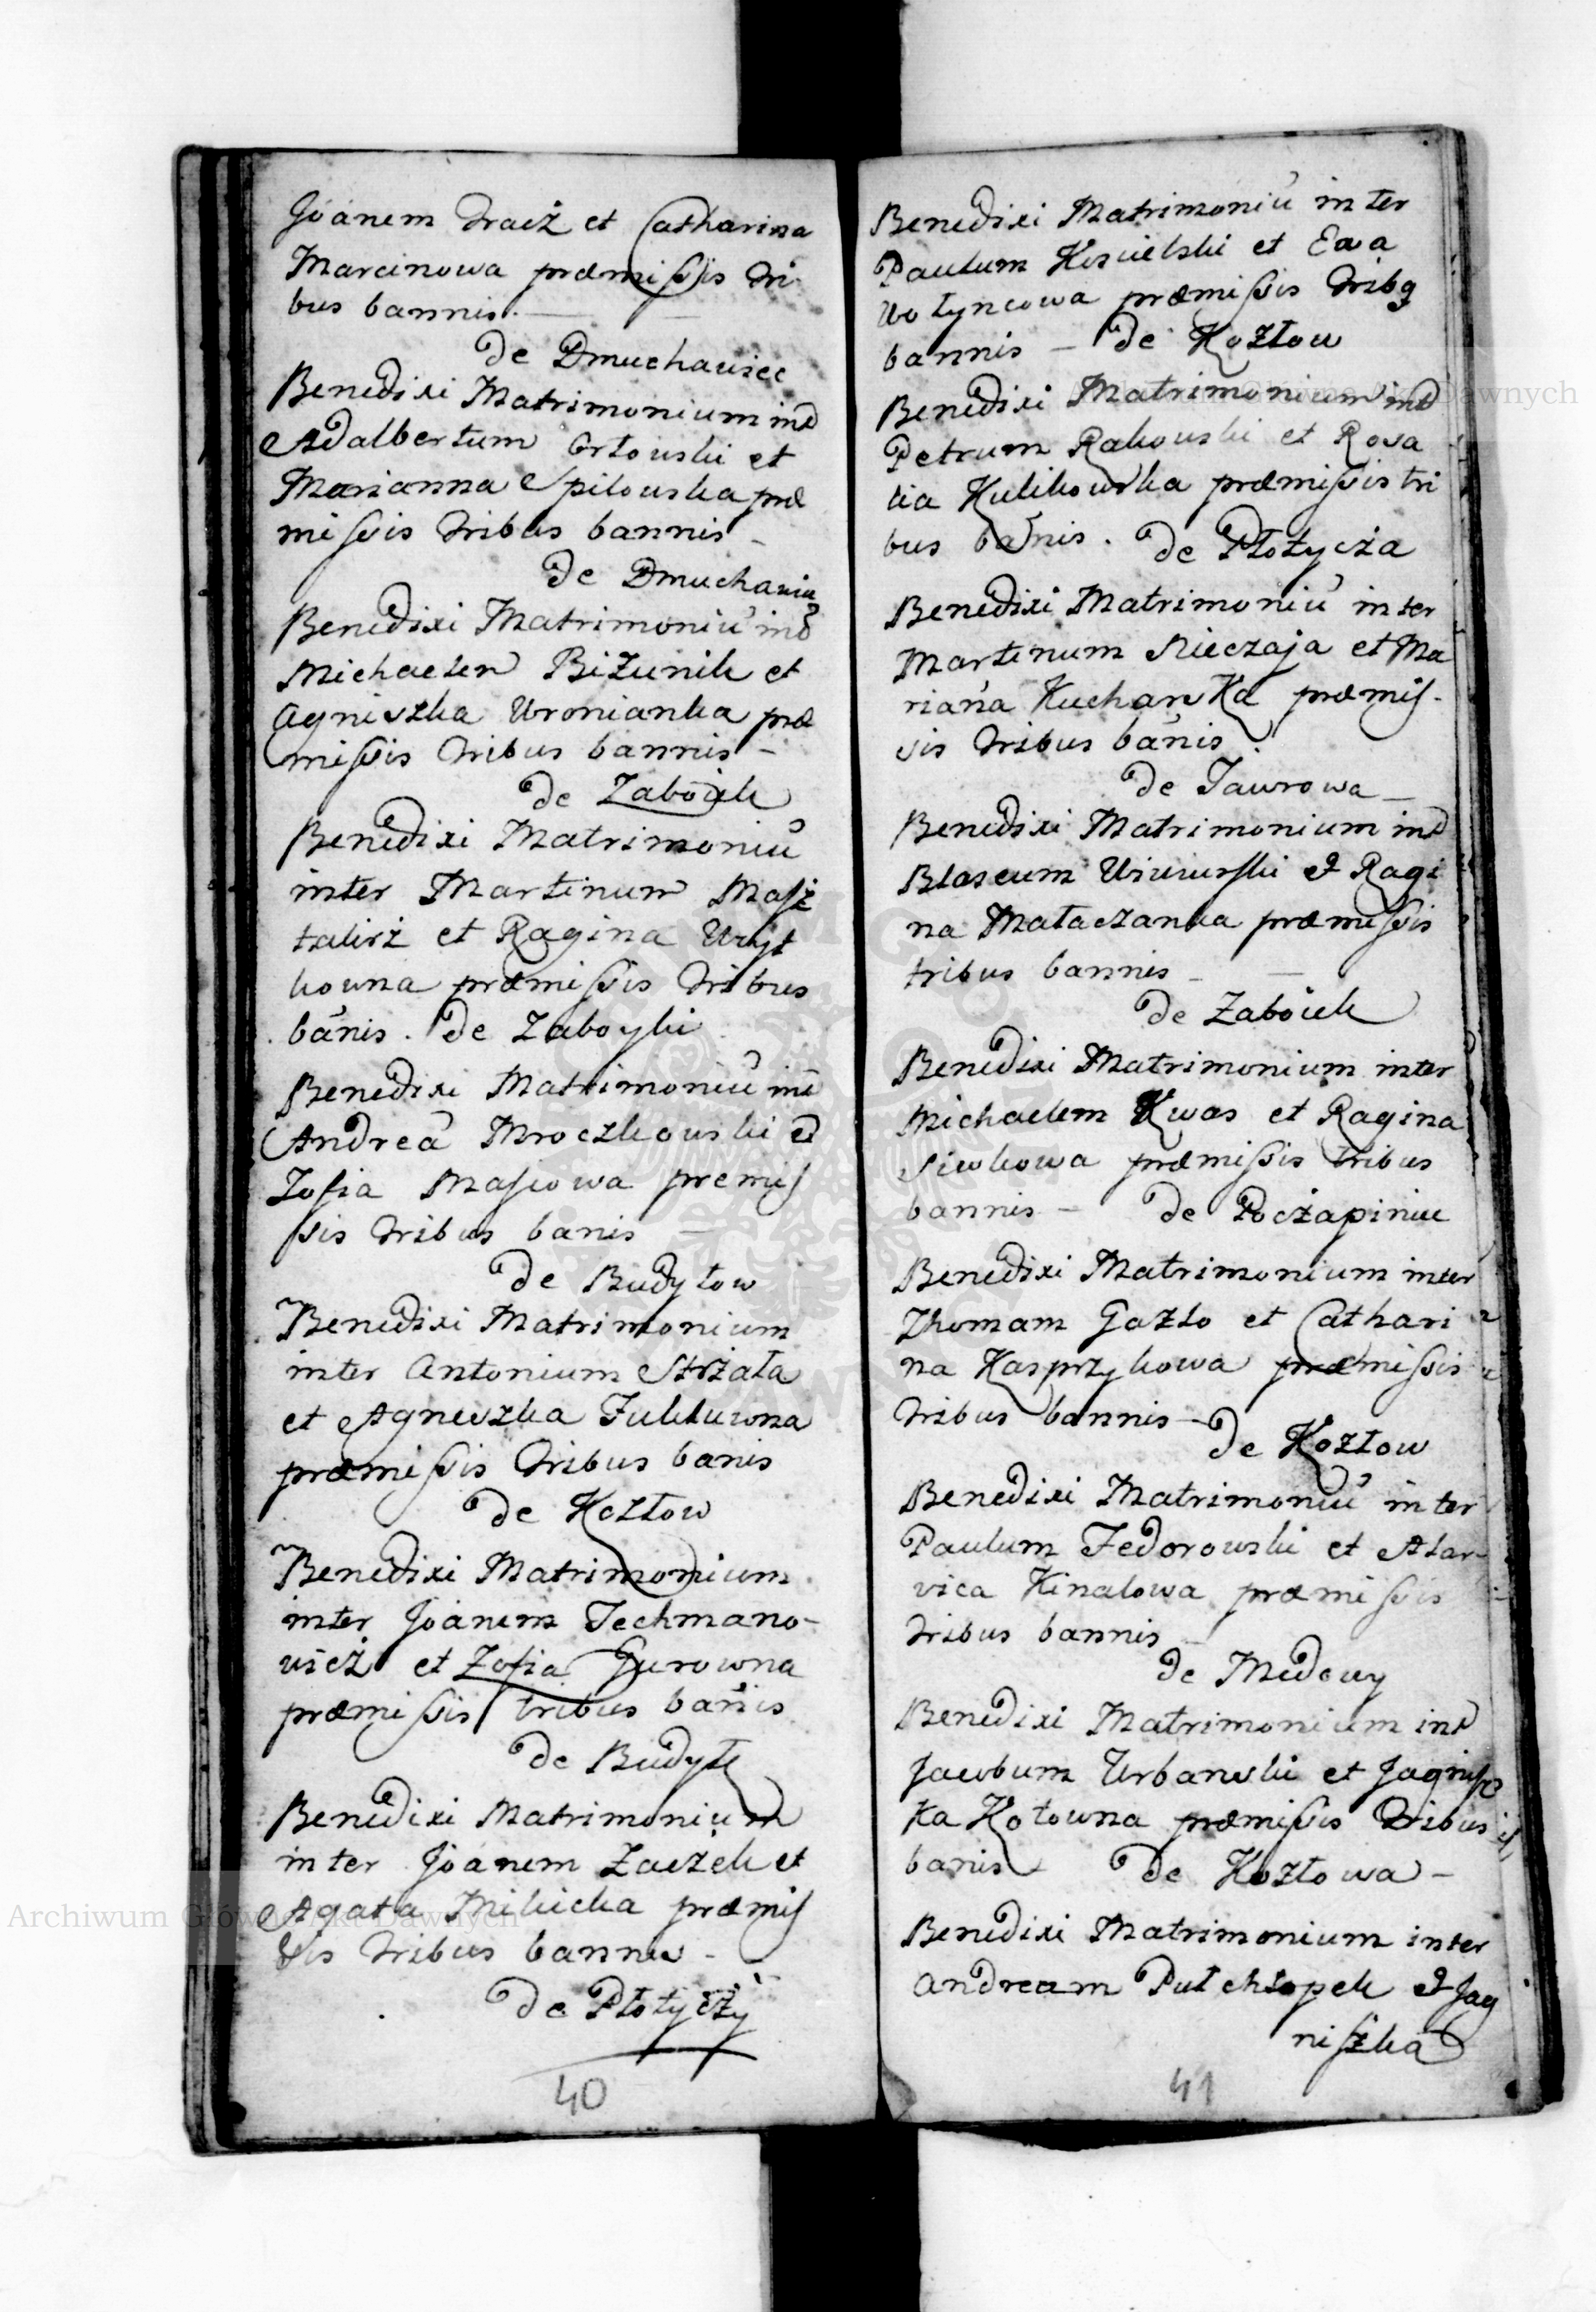 Joánem Dracż et Catharina
Marcinowa præmissis tri
bus bannis.
de Dmuchawiec
Benedixi Matrimonium int
Adalbertum Orłowski et
Marianna Spiłowska præ
missis tribus bannis
de Dmuchawiec
Benedixi Matrimoniu int
Michaelem Bizunik et
Agniszka Wronianka præ
missis tribus bannis
de Zaboiek
Benedixi Matrimoniu
inter Martinum Masz
talirz et Ragina Wryt
kowna præmissis tribus
banis. de Zaboyki
Benedixi Matrimoniu int
Andrea Mroczkowski et
Zofia Masiowa premis
sis tribus banis
de Budyłow
Benedixi Matrimonium
inter Antonium Strzała
et Agneszka Julkluwna
præmissis tribus banis
de Kozłow
Benedixi Matrimonium
inter Joánem Techmano-
wicż et Zofia Gurowna
præmissis tribus banis
de Budyłę
Benedixi Matrimonium
inter Joánem Zaczek et
Agata Milicka præmis
sis tribus bannis
de Płotyczy
40
Benedixi Matrimoniu inter
Paulum Kisielski et Ewa
Wołyncowa præmissis tribq
bannis – de Kozłow
Benedixi Matrimonium int
Petrum Rakowski et Rosa
lia Kulikowska præmissis tri
bus banis. de Płotycża
Benedixi Matrimoniu inter
Martinum Nieczaja et Ma
riana Kucharska præmis-
sis tribus banis.
de Jawrowa
Benedixi Matrimonium int
Blaseum Wiwiurski et Ragi
na Mataczanka præmissis
tribus bannis
de Zaboiek
Benedixi Matrimonium inter
Michaelem Kwas et Ragina
Siwkowa præmissis tribus
bannis – de Pocżapiniec
Benedixi Matrimonium inter
Thomam Gazło et Cathari
na Kasprzykowa præmissis
tribus bannis
de Kozłow
Benedixi Matrimoniu inter
Paulum Fedorowski et Mar-
vica Kinalowa præmissis
tribus bannis
de Medowy
Benedixi Matrimonium int
Jacobum Urbanski et Jagnisz
ka Kotowna præmissis tribus
banis – de Kozłowa –
Benedixi Matrimonium inter
Andream Putchłopek et Jag
niszka
41
Archiwum Główne Akt Dawnych